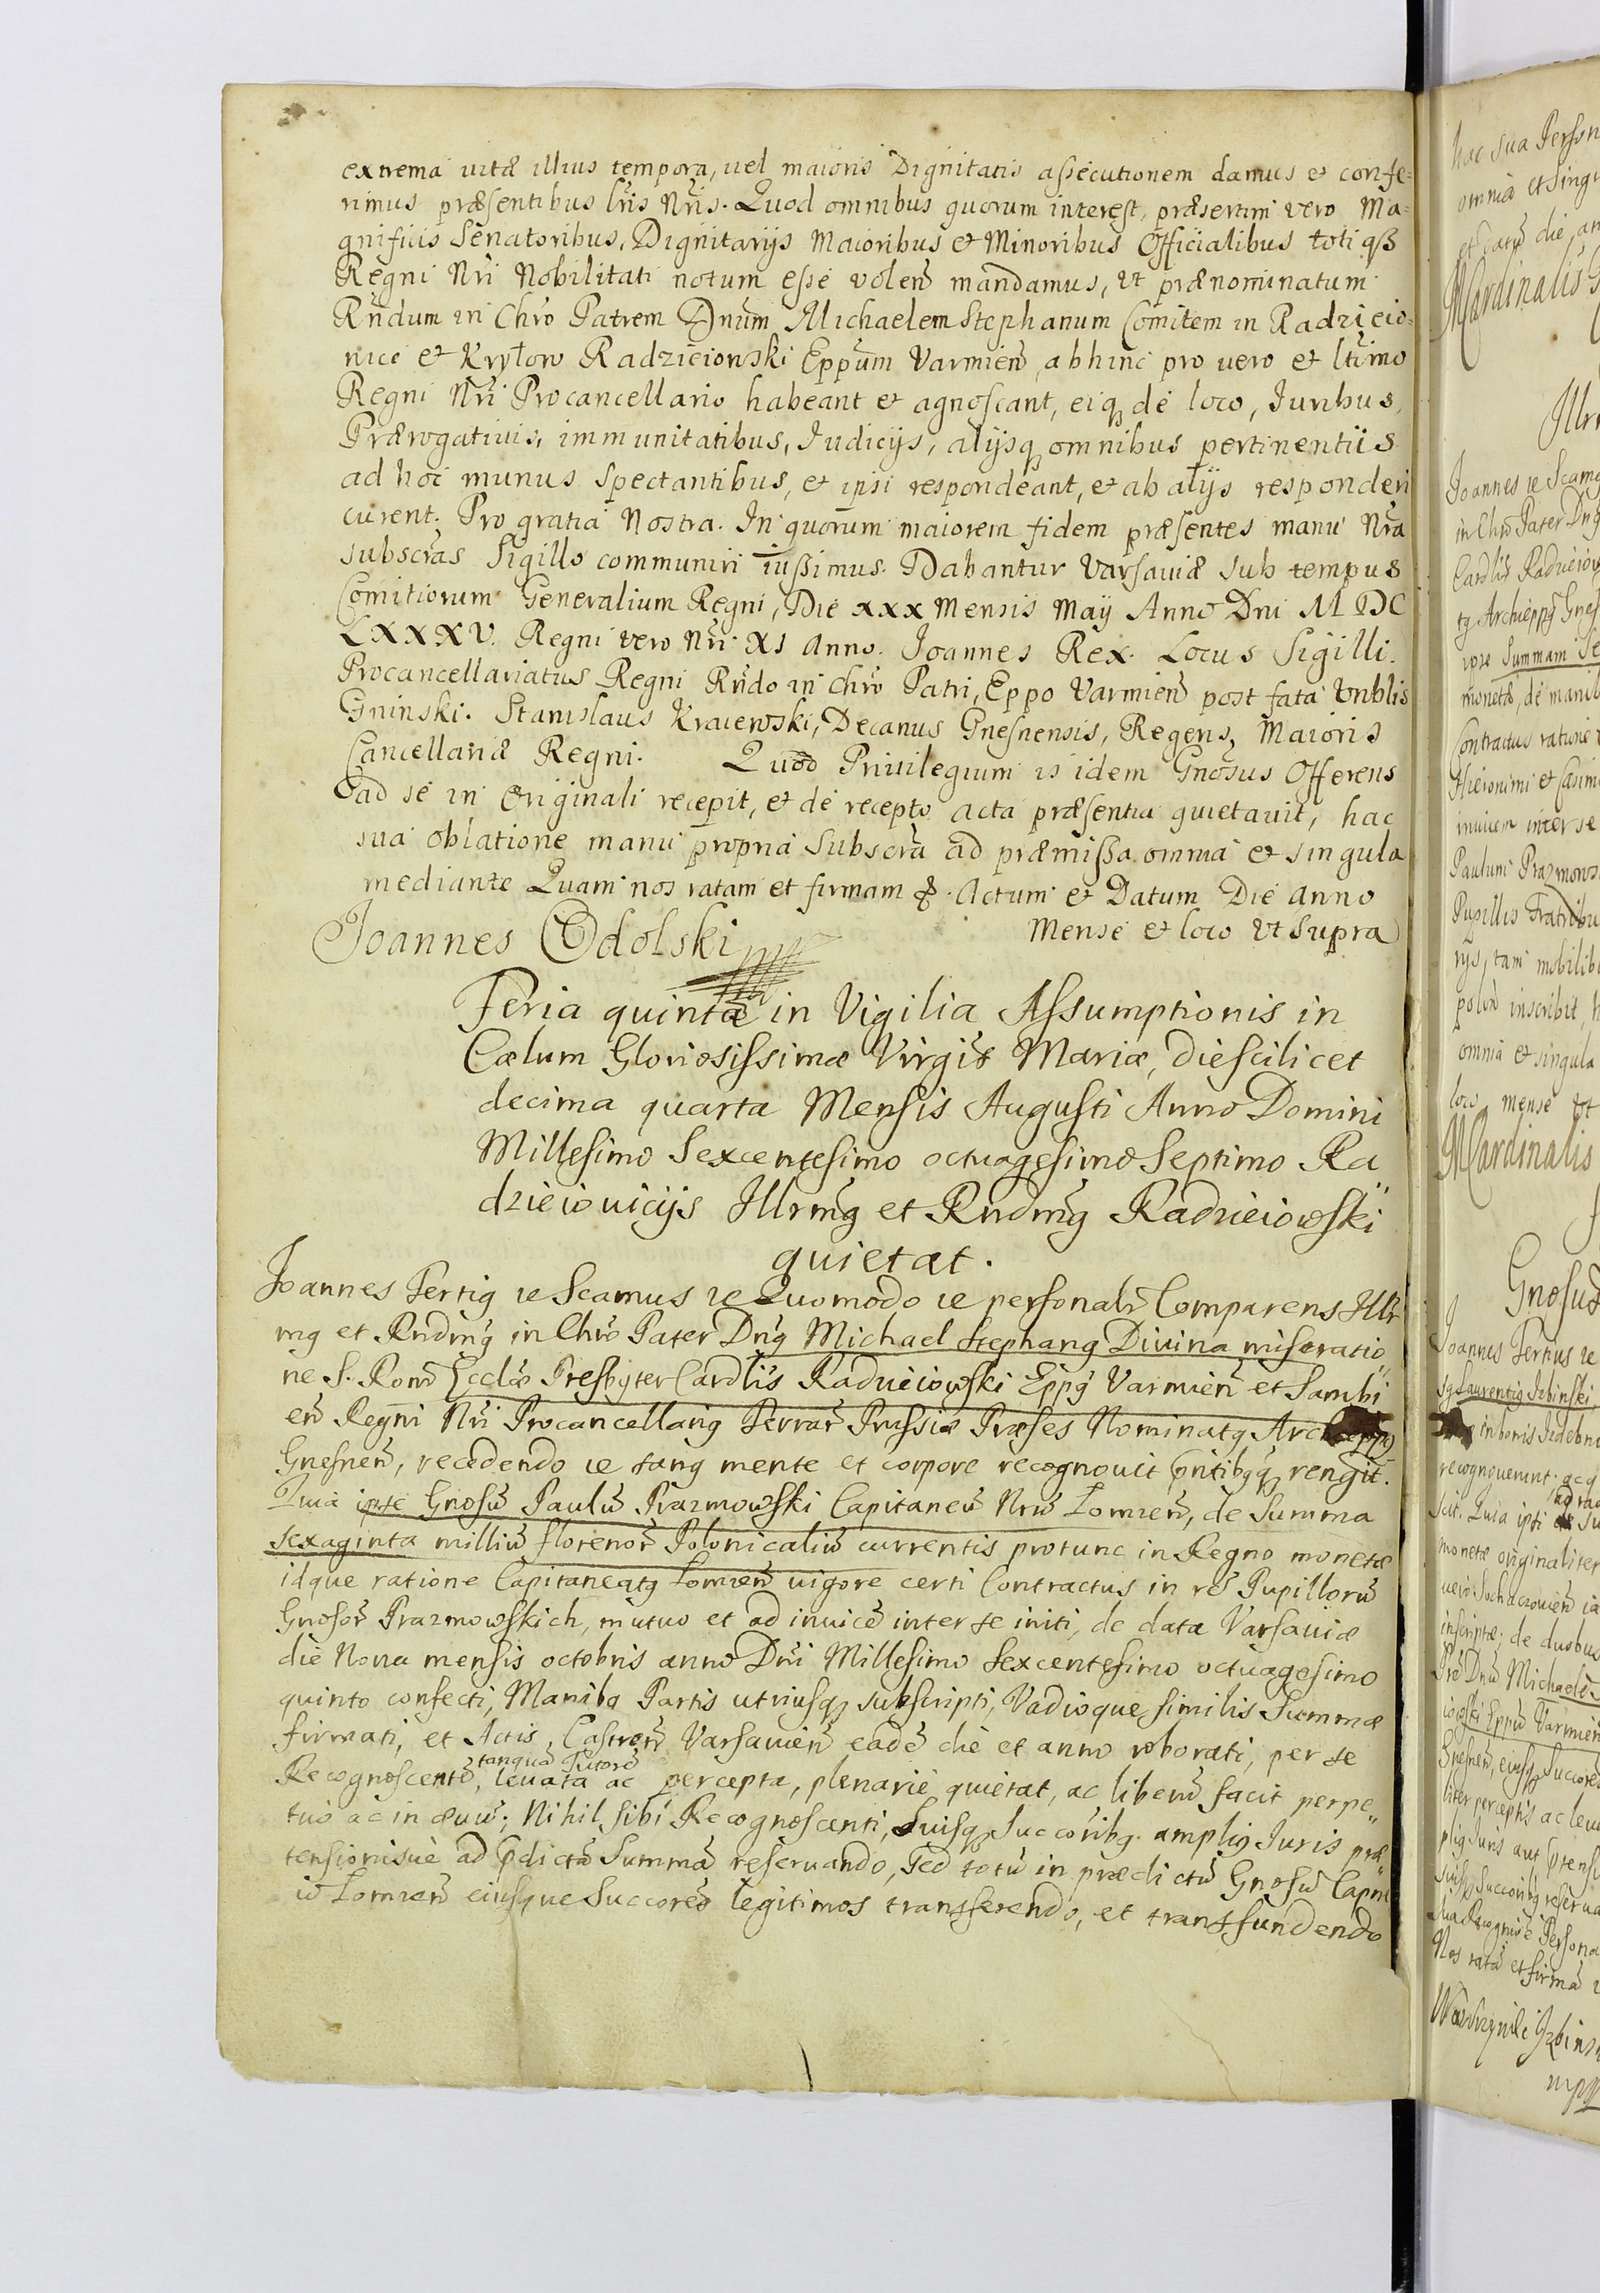 extrema uitæ illius tempora, uel maioris Dignitatis assecutionem damus et confe=
rimus præsentibus lris Nris. Quod omnibus quorum interest, præsertim vero Ma=
gnificis Senatoribus, Dignitarijs Maioribus et Minoribus Officialibus toti qß
Regni Nri Nobilitati notum esse volen mandamus, ut prænominatum
Rndum in Chro Patrem Dnum Michaelem Stephanum Comitem in Radzieio=
nice et Kryłow Radzieionski Eppum Varmien abhinc pro uero et ltimo
Regni Nri Procancellario habeant et agnoscant, eiq de loco, Iuribus,
Prærogatiuis, immunitatibus, Iudicijs, alijsq omnibus pertinentiis
ad hoc munus spectantibus, et ipsi respondeant, et ab alijs responderi
curent. Pro gratia Nostra. In quorum maiorem fidem præsentes manu Nra
subscras Sigillo communiri iussimus. Dabantur Varsauiæ sub tempus
Comitiorum Generalium Regni, Die XXX Mensis Maÿ Anno Dni M DC
LXXXV. Regni vero Nri XI Anno. Joannes Rex. Locus Sigilli.
Procancellariatus Regni Rndo in Chro Patri, Eppo Varmien post fata Vnblis
Gninski. Stanislaus Kraiewski, Decanus Gnesnensis, Regens Maioris
Cancellariæ Regni. Quod Priuilegium is idem Gnosus Offerens
ad se in Originali recepit, et de recepto acta præsentia quietauit, hac
sua oblatione manu propria Subscra ad præmissa omnia et singula
mediante Quam nos ratam et firmam &. Actum et Datum Die Anno
Mense et loco vt Supra
Joannes Odolski
Feria quinta in Vigilia Assumptionis in
Cælum Gloriosissimæ Virgis Mariæ, die scilicet
decima quarta Mensis Augusti Anno Domini
Millesimo Sexcentesimo octuagesimo Septimo Ra
dzieiouicijs Illrmg et Rndmg Radzieiowski
quietat.
Joannes Tertig ie Seamus ie Quomodo ie personalr Comparens Illr
mg et Rndmg in Chro Pater Dng Michael Stephang Diuina miseratio
ne S. Rom Ecclæ Presbyter Cardlis Radzieiowski Eppg Varmien et Sambi
en Regni Nri Procancellarig Terrar Prussiæ Præses Nominatg Archieppg
Gnesnen, recedendo ie sang mente et corpore recognouit pntibqq rengit.
Quia ipse Gnosu Paulu Prazmowski Capitaneu Nru Lomzen, de Summa
sexaginta milliu florenor Polonicaliu currentis protunc in Regno monetæ
idque ratione Capitaneatg Lomzen uigore certi Contractus in re Pupilloru
Gnosor Prazmowskich, mutuo et ad inuice inter se initi, de data Varsauiæ
die Nona mensis octobris anno Dni Millesimo Sexcentesimo octuagesimo
quinto confecti, Manibq Partis utriusq subscripti, Vadioque similis Summæ
firmati, et Actis, Castren Varsauien eade die et anno roborati, per se
tanqua Tutore
Recognoscente, leuata ac percepta, plenariè quietat, ac liberu facit perpe
tuo ac in æuu; Nihil sibi Recognoscenti, Suisq Succoribg. amplig Iuris præ
tensionisuè ad pdicta Summa reseruando, Sed totu in prædictu Gnosu Capne
iu Lomzen eiusque Succores legitimos transferendo, et transfundendo
hac sua Person
omnia et singu
et datu die, an
MCardinalis
Joannes ie Seamg
in Chro Pater Dng
Cardlis Radzieiow
tg Archieppg Gnes
ipse Summam Se
monetæ, de manib
Contractus ratione
Hieronimi et Casim
inuicem inter se
Pauluni Prazmows
Pupillis Fratribu
rijs, tam mobilib
inscribit, h
omnia et singula
loco mense vt
MCardinalis
Gnosus
Joannes Tertius ie
Laurentig Izbinski,
in bonis
recognouerunt; ac q
scit. Quia ipsi
monetæ originaliter
inscriptæ; de duobus
Dnu Michaele
Eppu Varmien
Gnesnen, eiusq Succores
liter perceptis ac leu
plig Iuris aut
Suisq Succoribg reserua
Persona
Nos rata et firma
Wawrzyniec Izbins
mpp